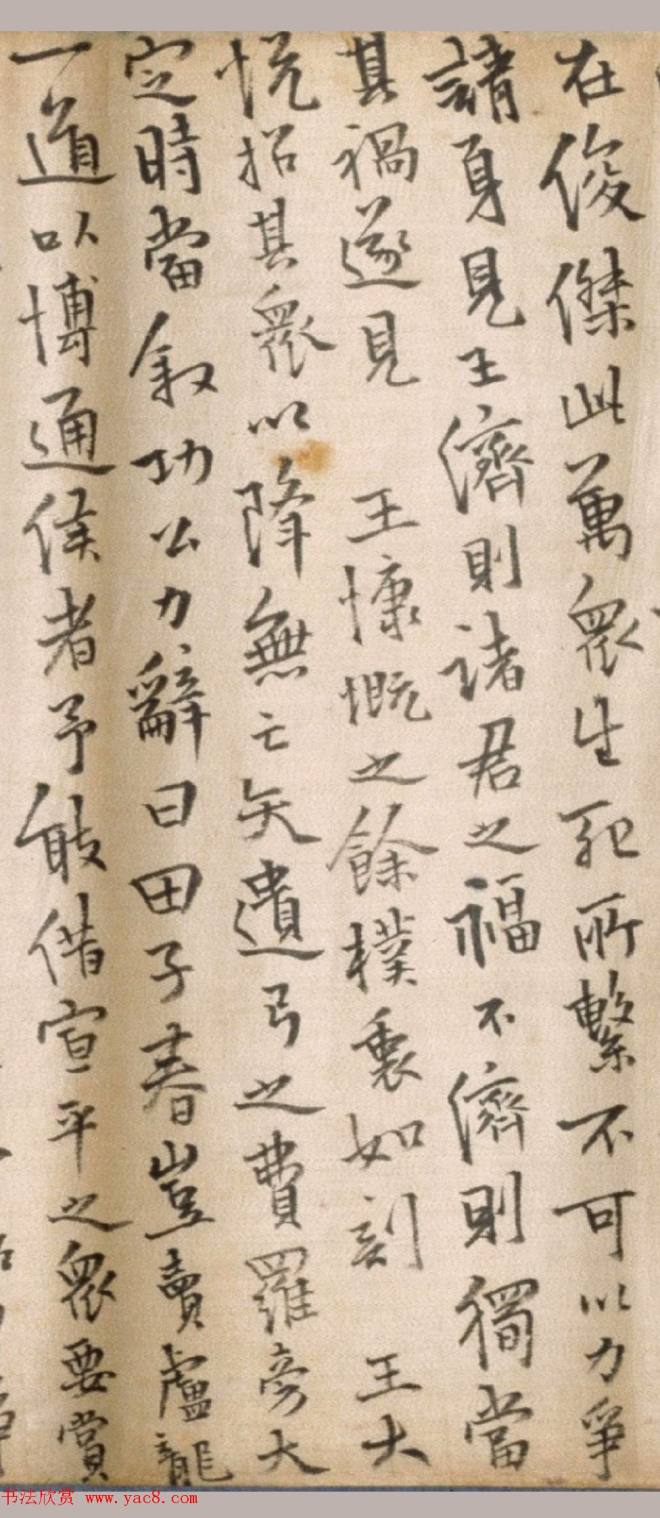 在俊傑此萬眾生死所繫不可以力爭
請身見王濟則諸君之福不濟則獨當
其禍遂見 王慷慨之餘樸衷如刻 王大
悅招其眾以降無亡矢遺弓之費羅旁大
定時當叙功公力辭曰田子春豈賣盧龍
一道以博通侯者予敢借宣平之眾要賞
书法欣赏 www.yac8.com